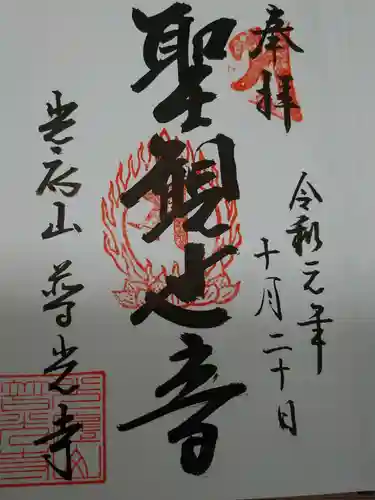 奉拝
令和元年
十月二十日
聖観世音
普光寺